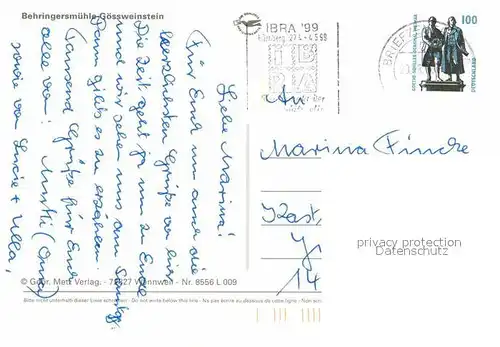 Behringersmühle-Gössweinstein
IBRA '99
Nürnberg 27.4.-4.5.99
IB
RA
BRIEF
100
DEUTSCHLAND
Liebe Marina!
Für Euch nun auch die
herzlichsten Grüße von hier.
Die Zeit geht ja nun zu Ende
und wir sehen uns am Sonntag.
Dann gibts es zu erzählen.
Tausend Grüße für Euch
alle von Mutti (Oma)
sowie von Lucie + Ulla,
An
Marina Fincke
Kast
14
privacy protection
Datenschutz
© Gebr. Metz Verlag Nr. 8556 L 009
Bitte nicht unterhalb dieser Linie schreiben - Do not write below this line - Ne pas écrire au-dessous de cette ligne - Non